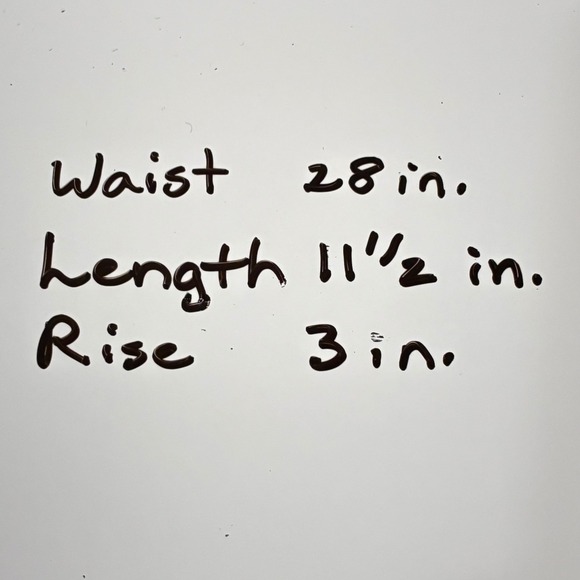 Waist 28 in.
Length 11 1/2 in.
Rise 3 in.